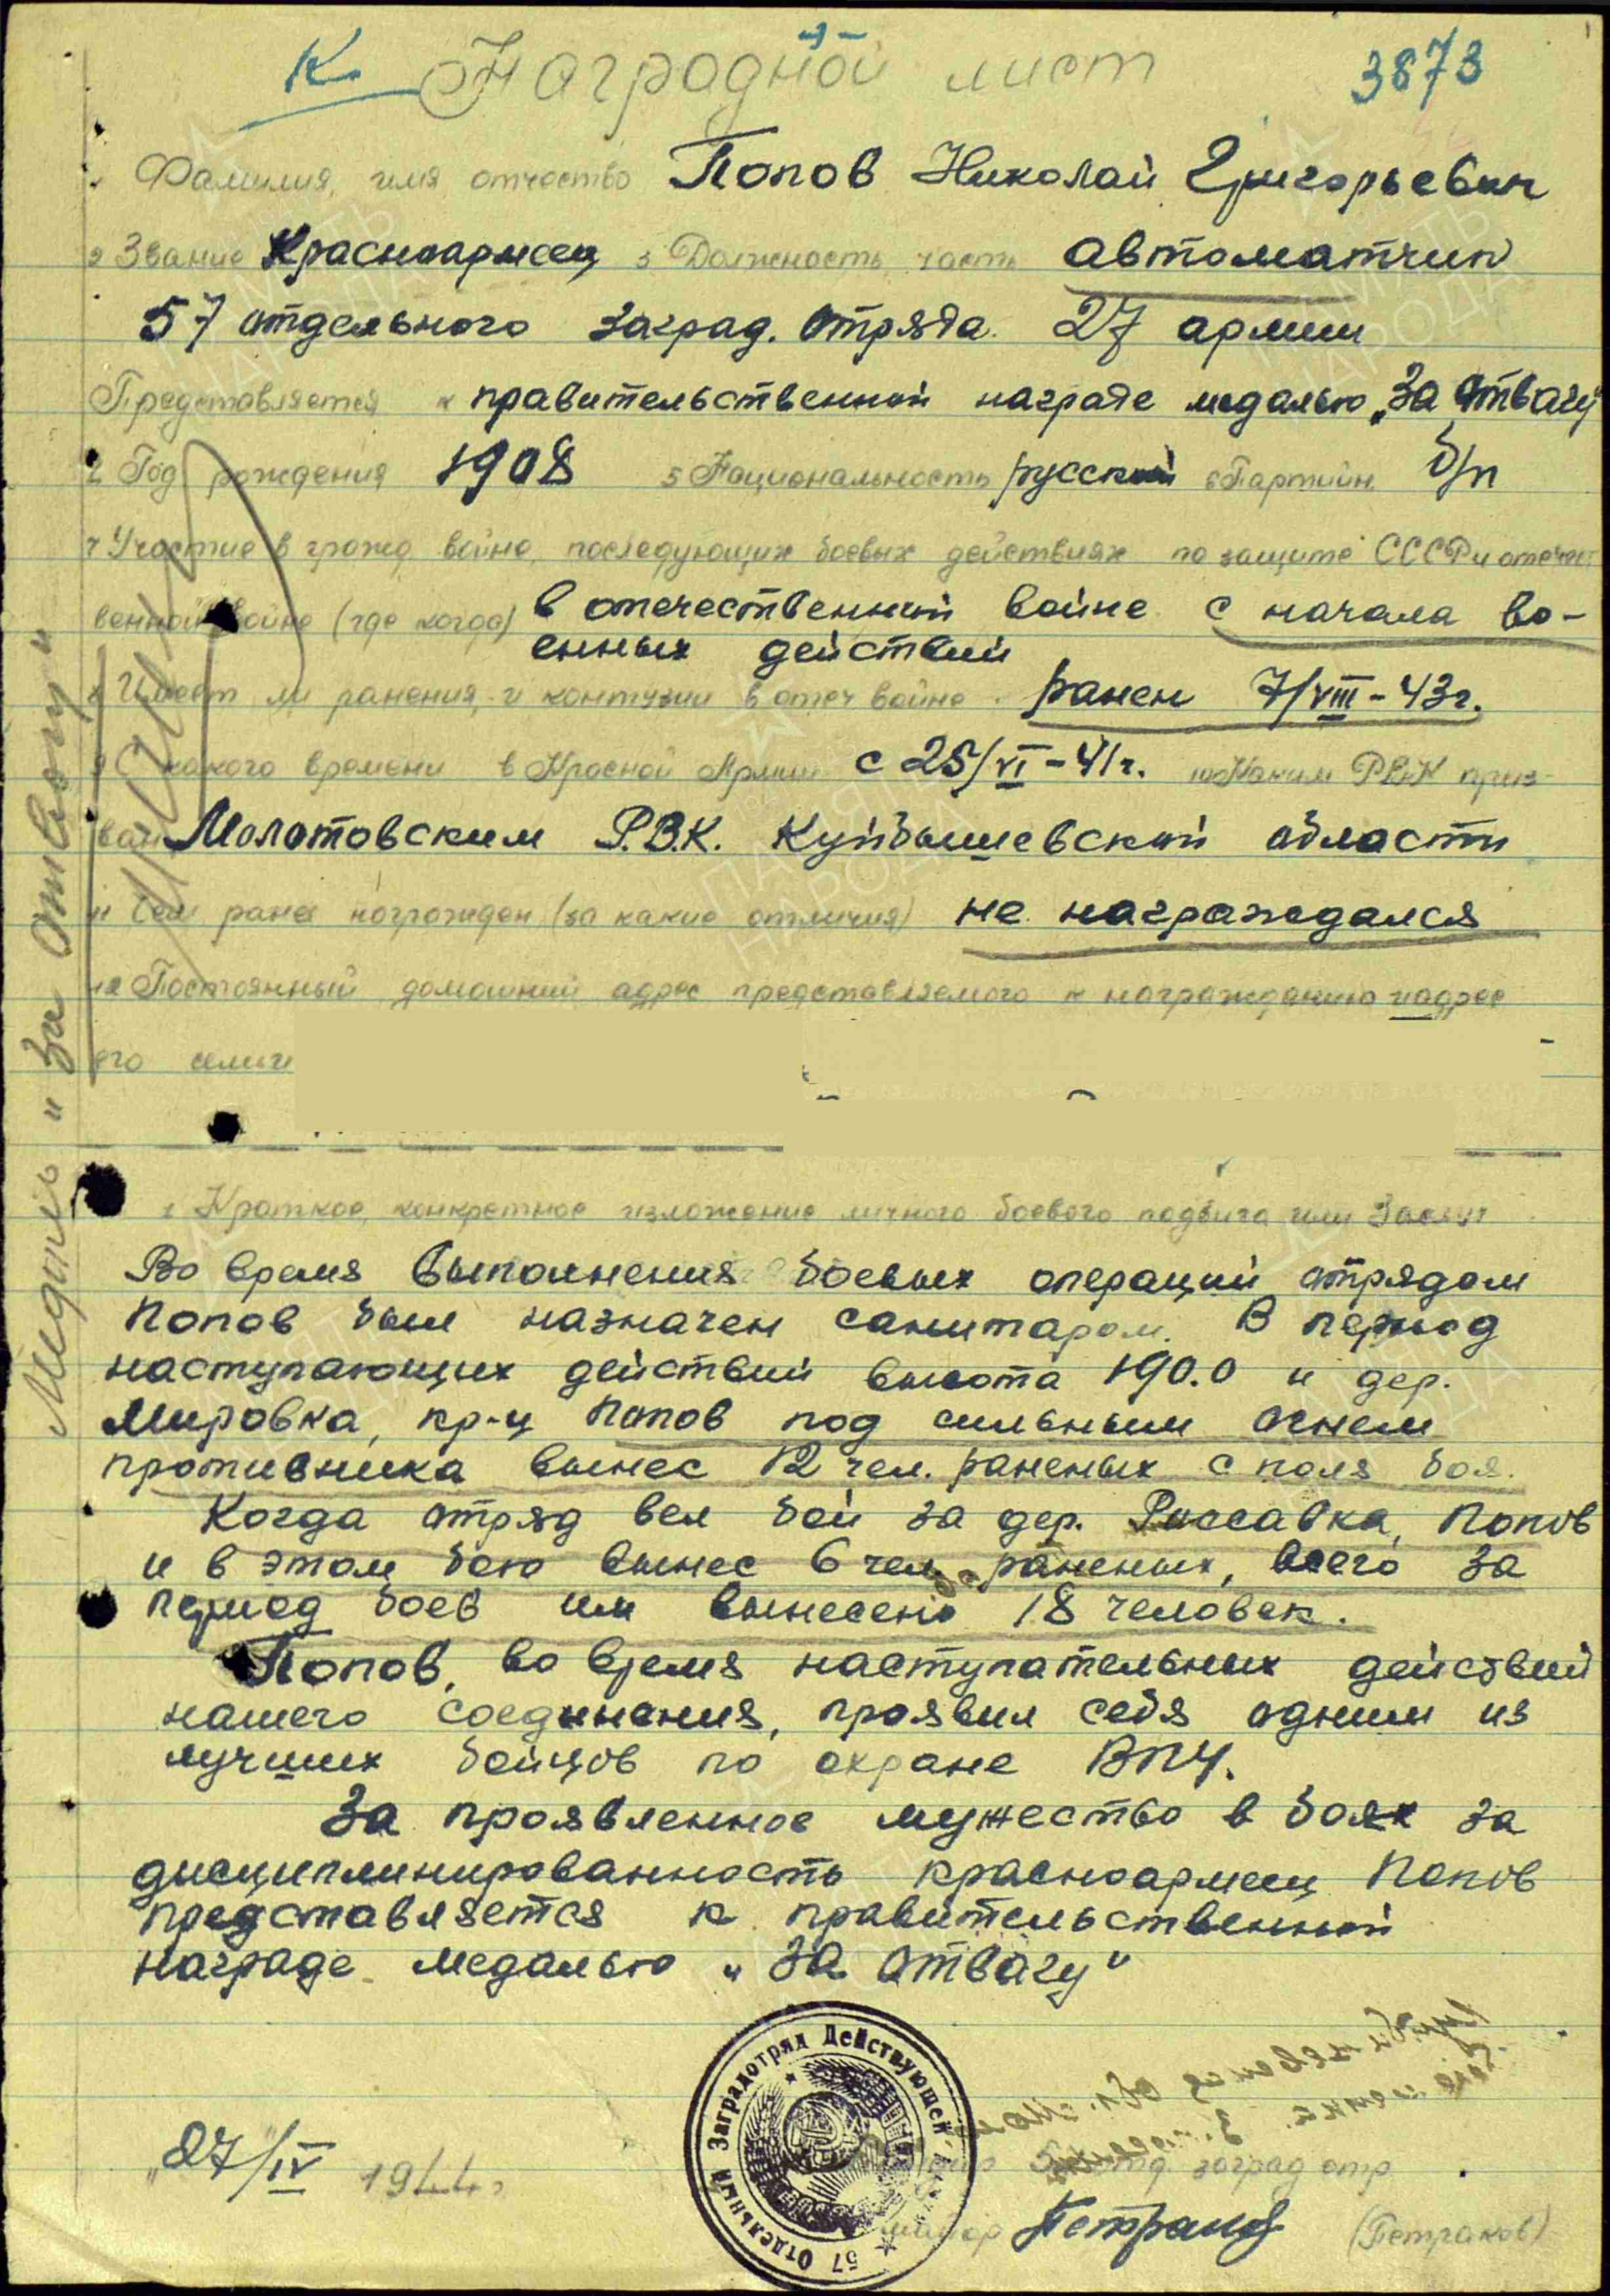 К Наградной лист 3873
Фамилия, имя отчество Попов Николай Григорьевич
2 Звание Красноармеец 3 Должность, часть автоматчик
57 отдельного заград. отряда 27 армии
Представляется к правительственной награде медалью „За Отвагу"
Год рождения 1908 5 Национальность русский 6 Партийн. б/п
7 Участие в гражд. войне, последующих боевых действиях по защите СССР и отечест
венной войне (где когда) в отечественной войне с начала во-
енных действий
8 Имеет ли ранения и контузии в отеч войне. ранен 7/VIII-43г.
9 С какого времени в Красной Армии с 25/VI-41г. 10 Каким РВК приз-
ван Молотовским Р.В.К. Куйбышевской области
11 Чем ранее награжден (за какие отличия) не награждался
12 Постоянный домашний адрес представляемого к награждению и адрес
его семьи
Медаль „За Отвагу"
1 Краткое, конкретное изложение личного боевого подвига или заслуг
Во время выполнения боевых операций отрядом
Попов был назначен санитаром. В период
наступающих действий высота 190.0 и дер.
Мировка, кр-ц Попов под сильным огнем
противника вынес 12 чел. раненых с поля боя.
Когда отряд вел бой за дер. Россавка, Попов
и в этом бою вынес 6 чел. раненых, всего за
период боев им вынесено 18 человек.
Попов, во время наступательных действий
нашего соединения, проявил себя одним из
лучших бойцов по охране ВПУ.
За проявленное мужество в боях за
дисциплинированность красноармеец Попов
представляется к правительственной
награде медалью „За отвагу"
57 Отдельный Заградотряд Действующей
„27/IV 1944г.
57 отд. заград отр
майор Петраков (Петраков)